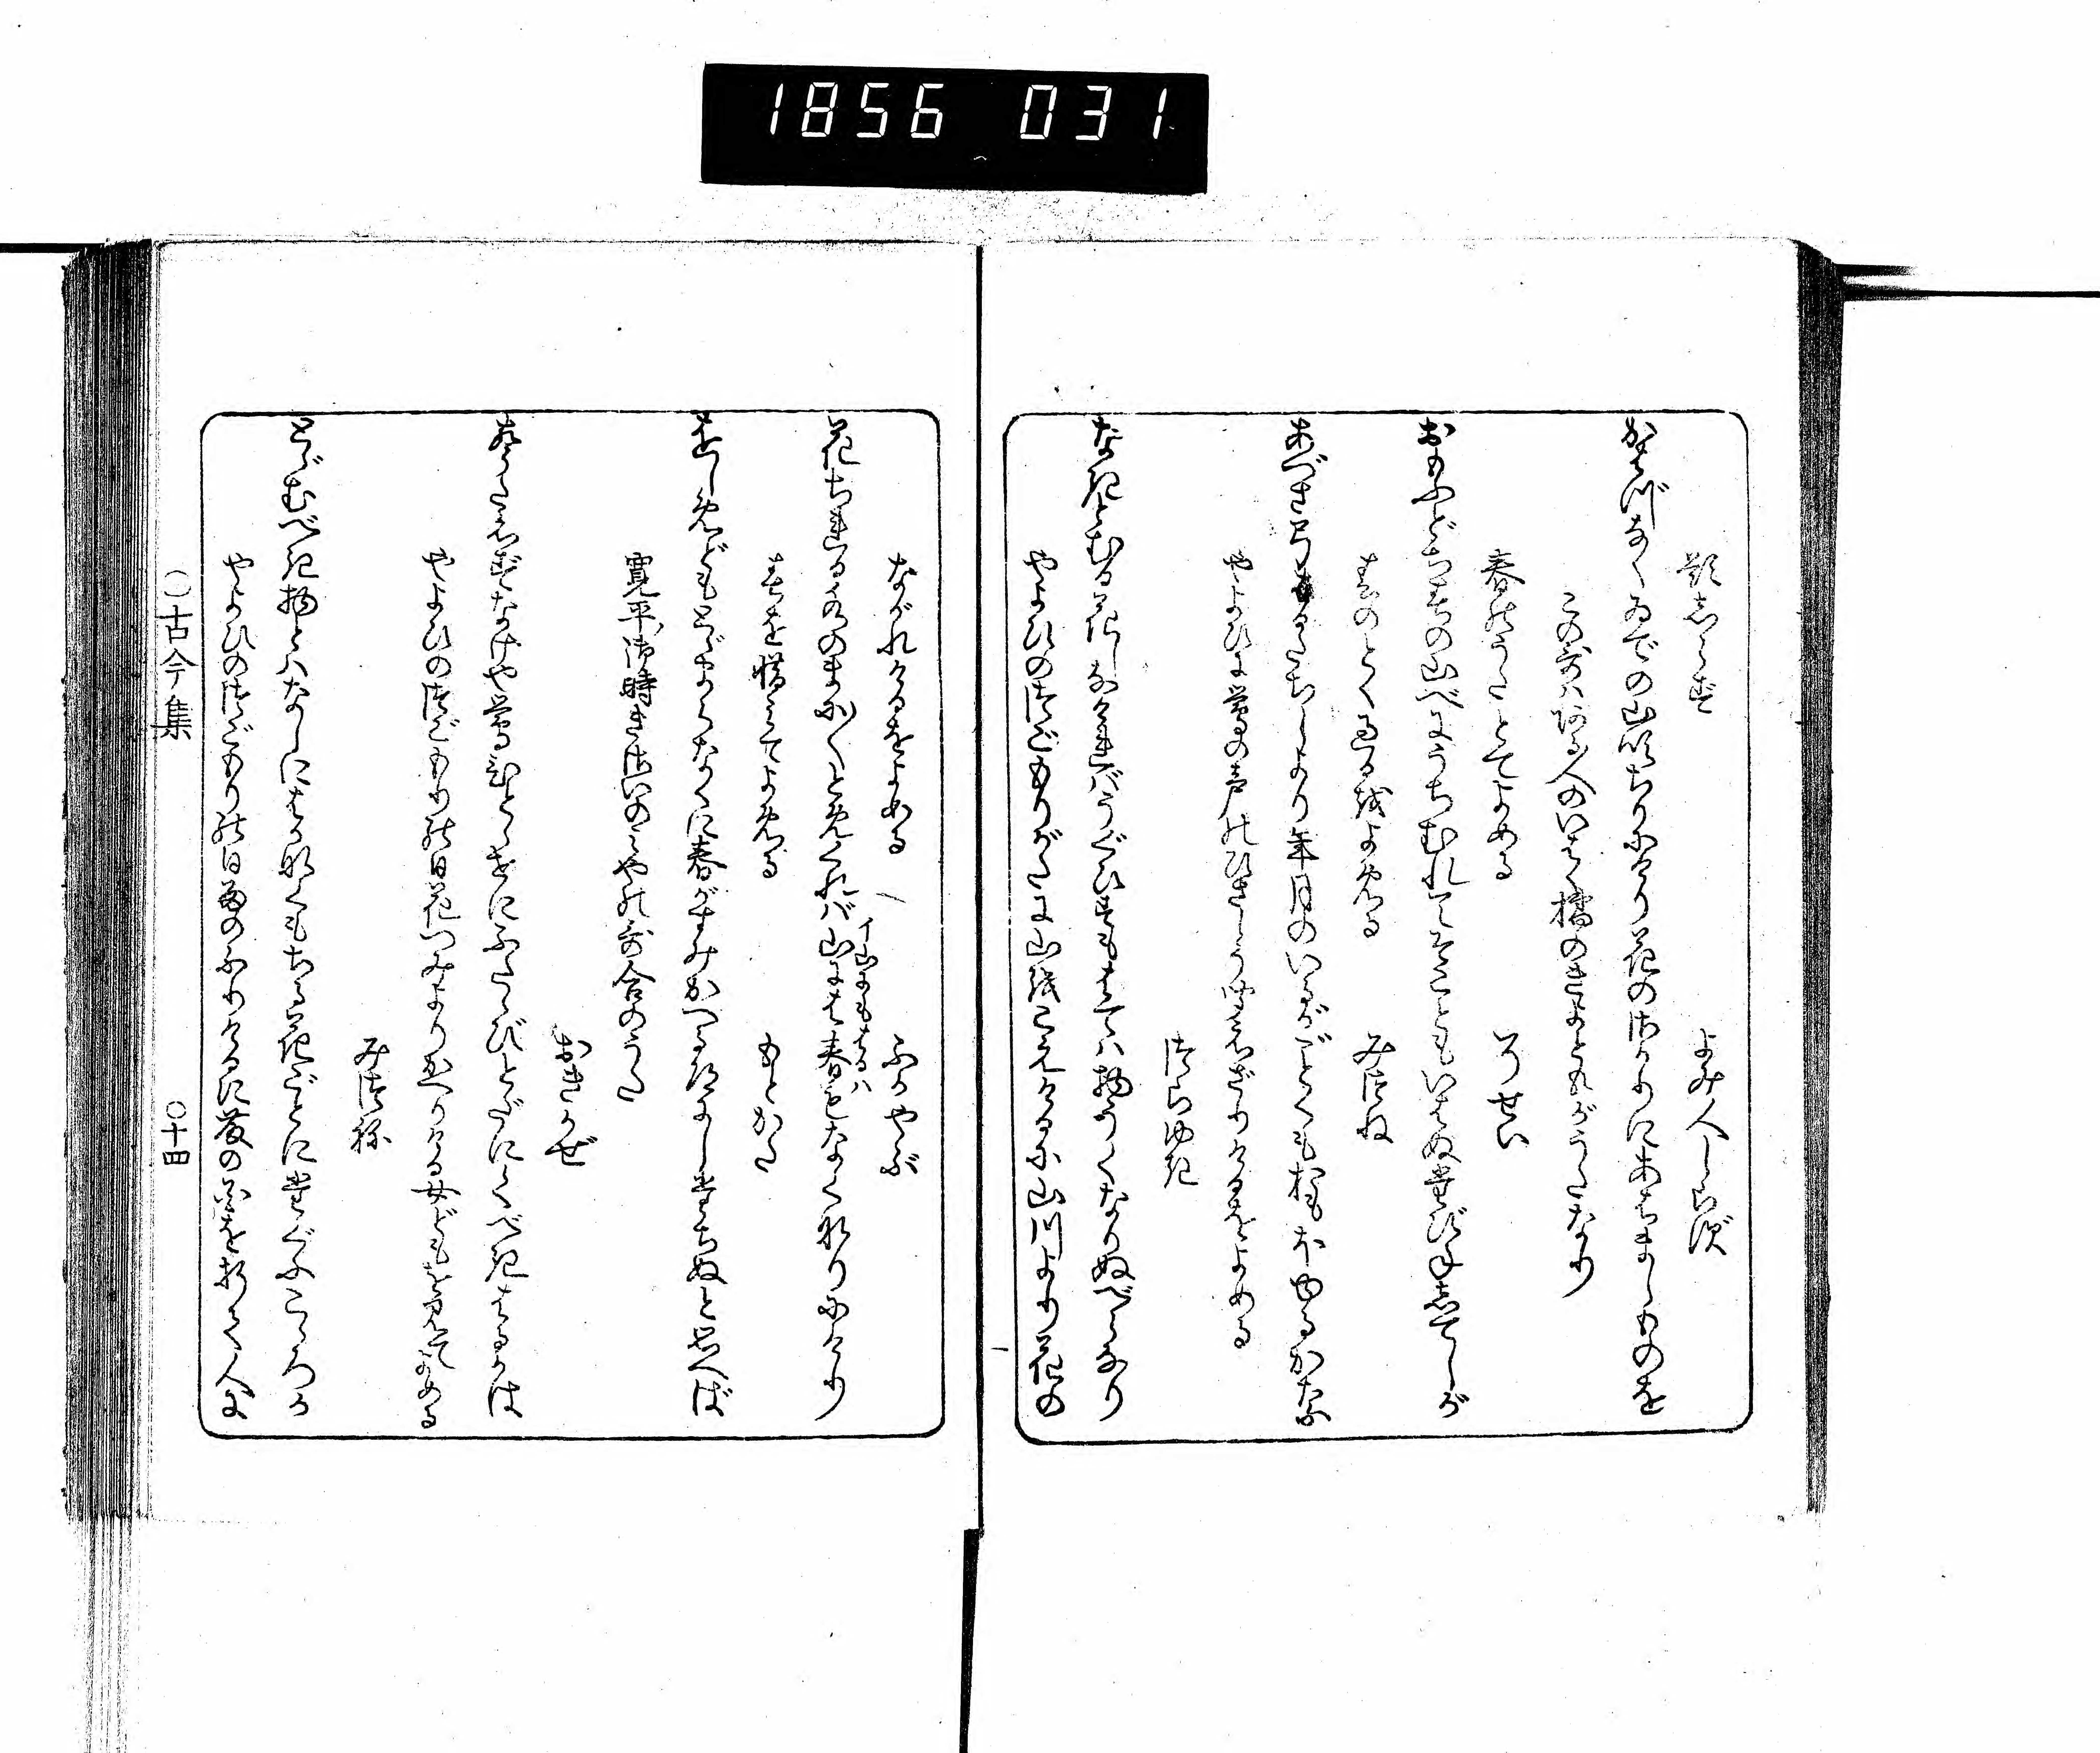 1856 031
題しらず　よみ人しらず
かはづなくゐでの山吹ちりにけり花のさかりにあはましものを
この哥はある人のいはく橘のきよともがうたなり
春のうたとてよめる　そせい
おもふどち春の山べにうちむれてそこともいはぬたびねしてしが
春のとく過るをよめる　みつね
あづさ弓春たちしより年月のいるがごとくもおもほゆるかな
やよひに鶯の声のひさしう聞えざりけるをよめる
つらゆき
なきとむる花しなければうぐひすもはては物うくなりぬべらなり
やよひのつごもりがたに山をこえけるに山川より花の
ながれけるをよめる　ふかやぶ
花ちれる水のまに〱とめくれば山には春もなくなりにけり
イ山にもはるは
春を惜みてよめる　もとかた
をしめどもとゞまらなくに春がすみかへる道にしたちぬと思へば
寛平御時きさいのみやの哥合のうた
おきかぜ
声たえずなけや鶯ひとゝせにふたゝびとだにくべき春かは
やよひのつごもりの日花つみよりかへりける女どもを見てよめる
みつね
とゞむべき物とはなしにはかなくもちる花ごとにたぐふこゝろか
やよひのつごもりの日雨のふりけるに藤の花を折て人に
○古今集　○十四